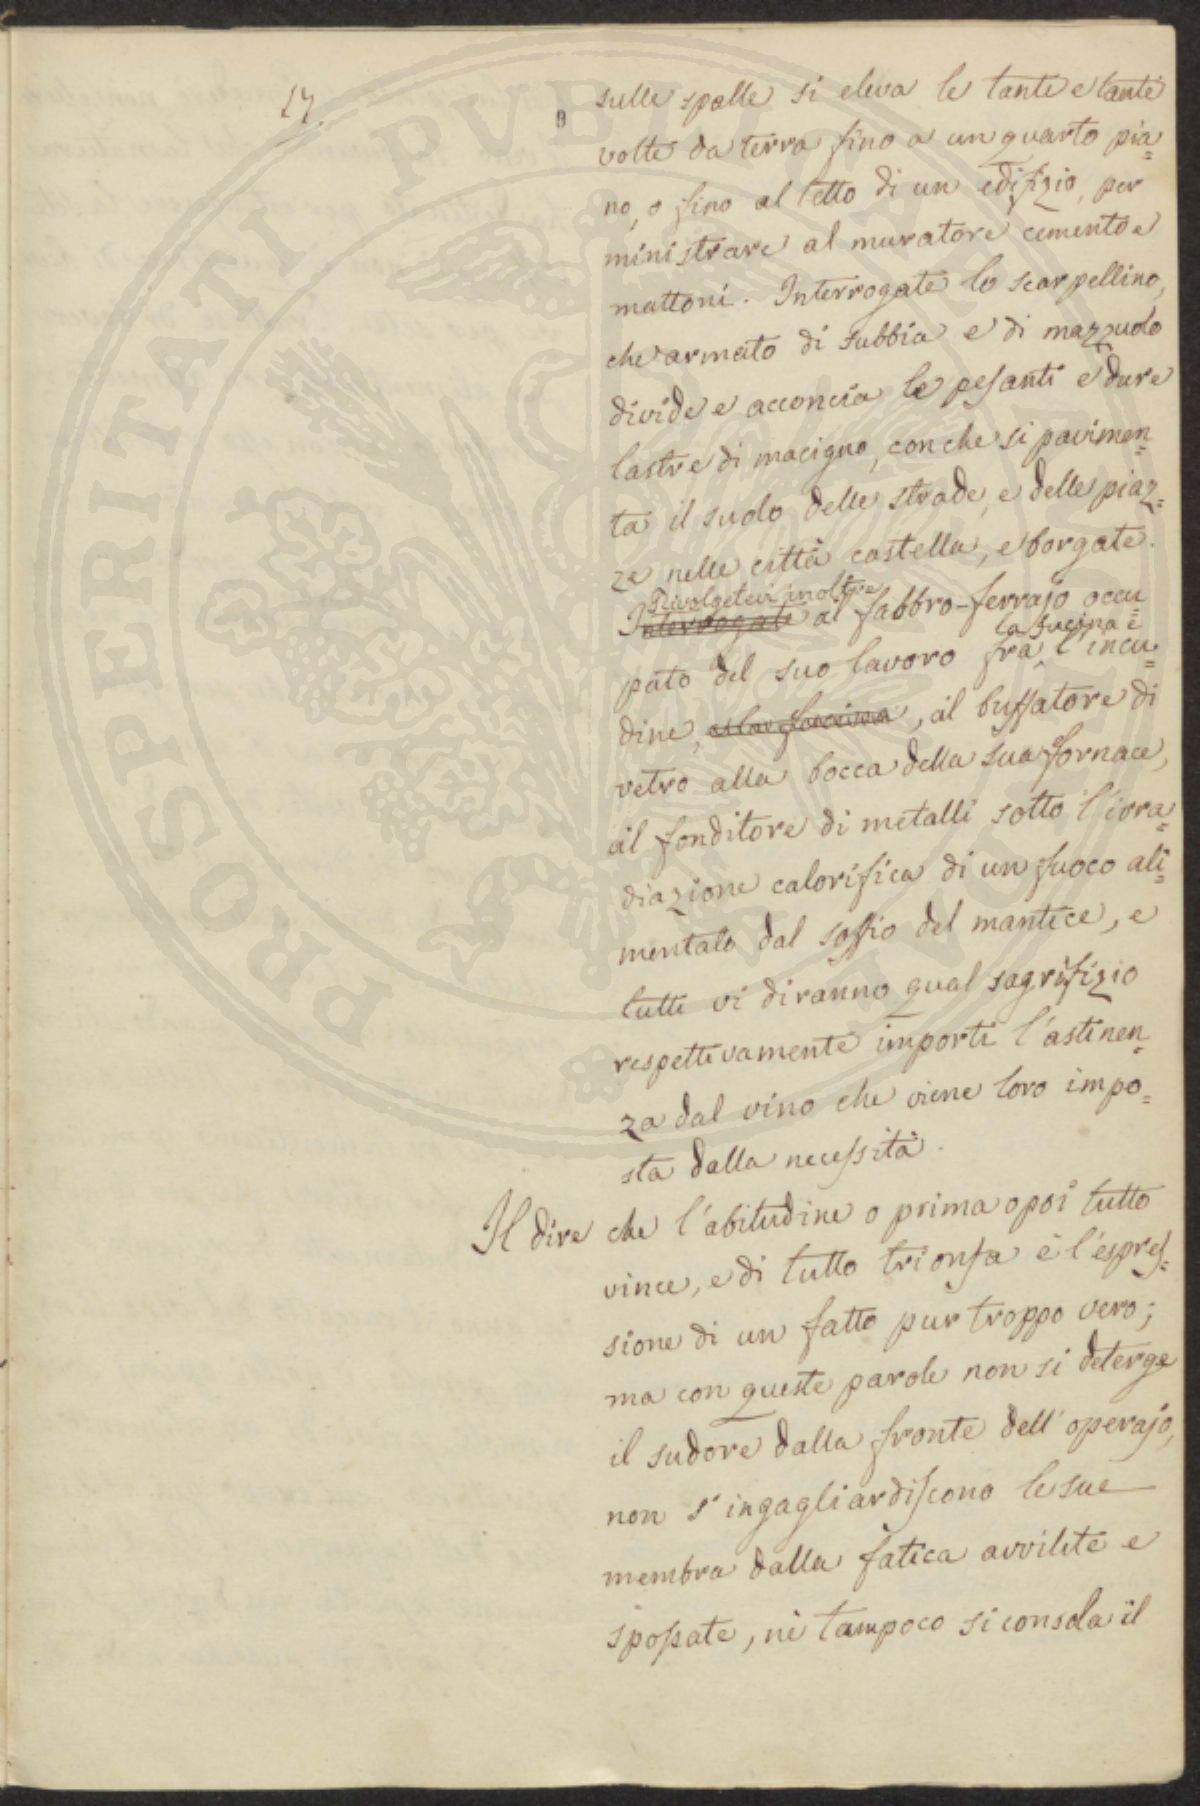 17.
sulle spalle si eleva le tante e tante
volte da terra fino a un quarto pia=
no, o fino al tetto di un edifizio, per
ministrare al muratore cemento e
mattoni. Interrogate lo scarpellino,
che armato di subbia e di mazzuolo
divide e acconcia le pesanti e dure
lastre di macigno, con che si pavimen=
ta il suolo delle strade, e delle piaz=
ze nelle città castella, e borgate.
Rivolgetevi inoltre
Interrogate al fabbro-ferrajo occu=
la fucina e
pato del suo lavoro fra l'incu=
dine, e la fucina, al buffatore di
vetro alla bocca della sua fornace,
al fonditore di metalli sotto l'irra=
diazione calorifica di un fuoco ali=
mentato dal soffio del mantice, e
tutti vi diranno qual sagrifizio
respettivamente importi l'astinen=
za dal vino che viene loro impo=
sta dalla necessità.
Il dire che l'abitudine o prima o poi tutto
vince, e di tutto trionfa è l'espres=
sione di un fatto pur troppo vero;
ma con queste parole non si deterge
il sudore dalla fronte dell'operajo,
non s'ingagliardiscono le sue
membra dalla fatica avvilite e
spossate, nè tampoco si consola il
PROSPERITATI PUBLICAE